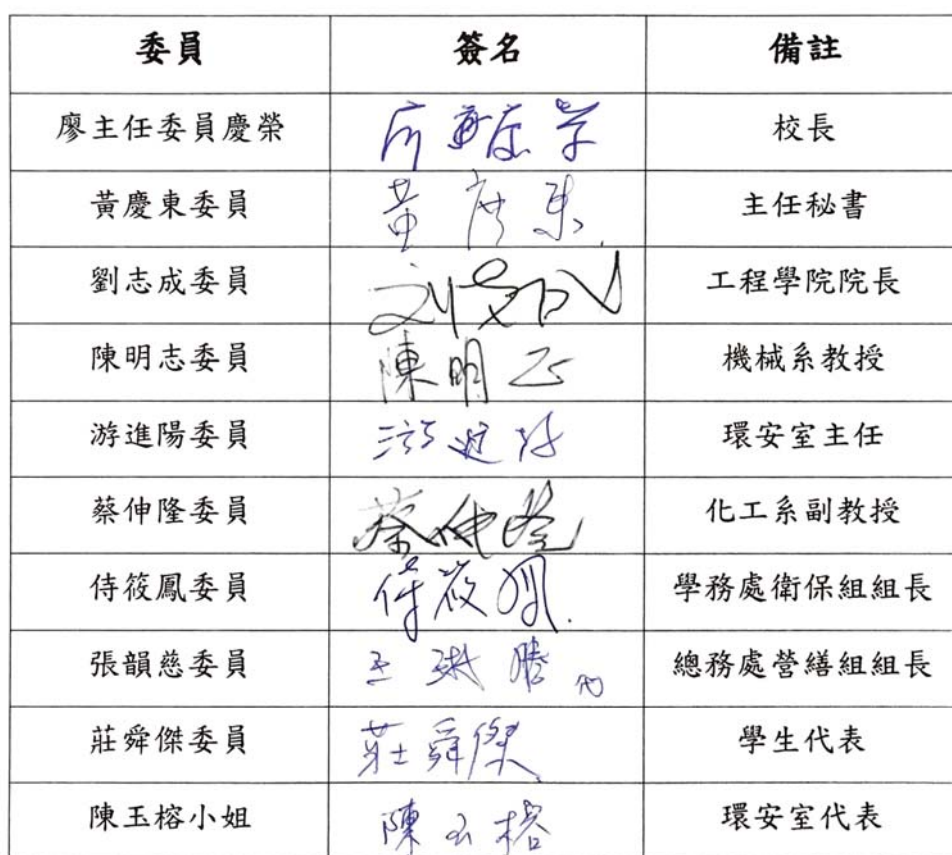 委員 簽名 備註
廖主任委員慶榮 廖慶榮 校長
黃慶東委員 黃慶東 主任秘書
劉志成委員 工程學院院長
陳明志委員 陳明志 機械系教授
游進陽委員 游進陽 環安室主任
蔡伸隆委員 蔡伸隆 化工系副教授
侍筱鳳委員 侍筱鳳 學務處衛保組組長
張韻慈委員 總務處營繕組組長
莊舜傑委員 莊舜傑 學生代表
陳玉榕小姐 陳玉榕 環安室代表